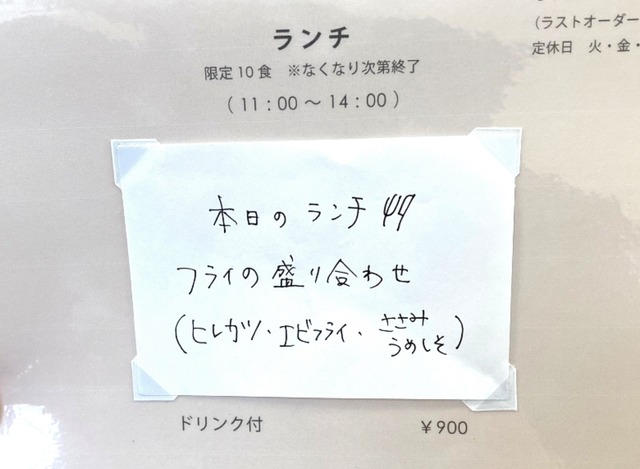 ランチ
限定10食 ※なくなり次第終了
(11:00～14:00)
(ラストオーダー
定休日 火・金・
本日のランチ
フライの盛り合わせ
(ヒレカツ・エビフライ・ささみうめしそ)
ドリンク付 ￥900